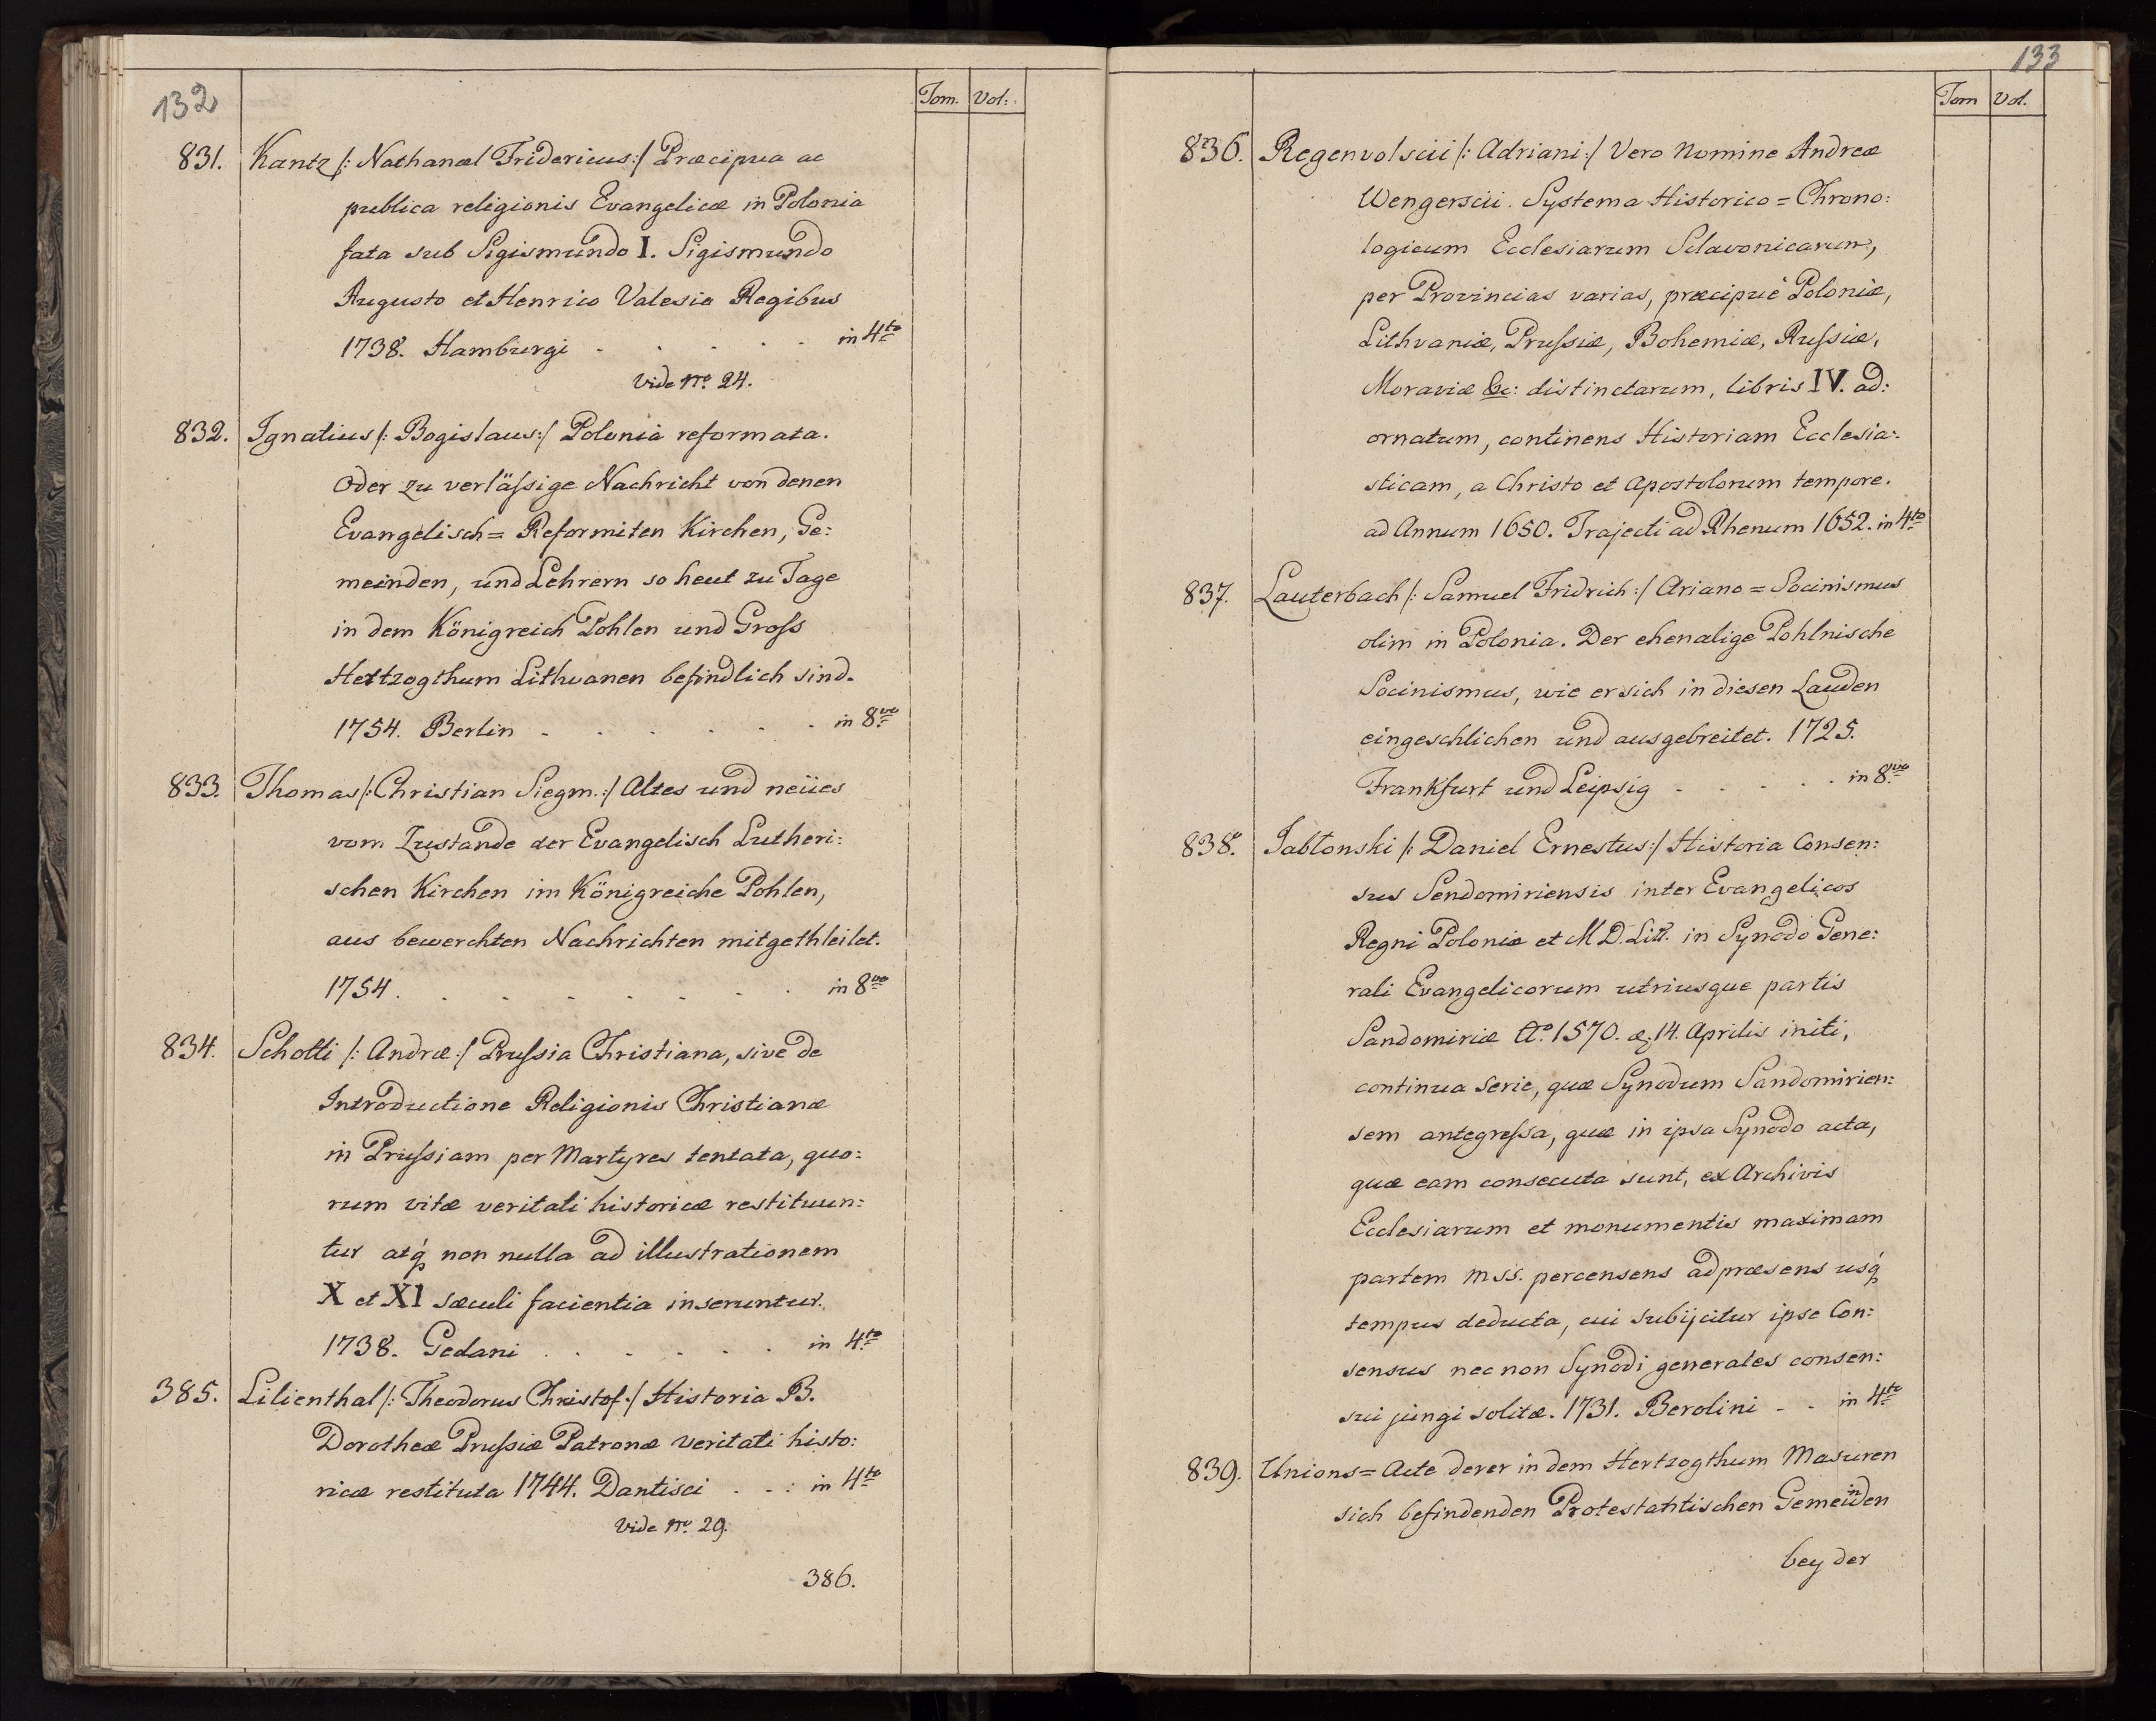 132
Tom. Vol:
831. Kantz /: Nathanæl Fridericus :/ Præcipua ac
publica religionis Evangelicæ in Polonia
fata sub Sigismundo I. Sigismundo
Augusto et Henrico Valesio Regibus
1738. Hamburgi - - - - - in 4to
Vide No. 24.
832. Ignatius /: Bogislaus :/ Polonia reformata.
Oder zu verläßige Nachricht von denen
Evangelisch= Reformiten Kirchen, Ge:
meinden, und Lehrern so heut zu Tage
in dem Königreich Pohlen und Gross
Hertzogthum Lithvanen befindlich sind.
1754. Berlin - - - - - in 8vo
833. Thomas /: Christian Siegm. :/ Altes und neües
vom Zustande der Evangelisch Lutheri:
schen Kirchen im Königreiche Pohlen,
aus bewerchten Nachrichten mitgethleilet.
1754. - - - - - - - in 8vo
834. Schotti /: Andræ :/ Prussia Christiana, sive de
Introductione Religionis Christianæ
in Prussiam per Martyres tentata, quo:
rum vitæ veritati historicæ restituun:
tur atq́ non nulla ad illustrationem
X et XI sæculi facientia inseruntur.
1738. Gedani - - - - - in 4to
385. Lilienthal /: Theodorus Christof :/ Historia B.
Dorotheæ Prussiæ Patronæ veritati histo:
ricæ restituta 1744. Dantisci - - : in 4to
Vide No. 29.
386.
133
Tom Vol.
836. Regenvolscii /: Adriani :/ Vero Nomine Andreæ
Wengerscii. Systema Historico = Chrono:
logicum Ecclesiarum Sclavonicarum,
per Provincias varias, præcipuè Poloniæ,
Lithvaniæ, Prussiæ, Bohemiæ, Russiæ,
Moraviæ &c: distinctarum, libris IV. ad:
ornatum, continens Historiam Ecclesia:
sticam, a Christo et Apostolorum tempore.
ad Annum 1650. Trajecti ad Rhenum 1652. in 4to
837. Lauterbach /: Samuel Fridrich :/ Ariano = Socinismus
olim in Polonia. Der ehenalige Pohlnische
Socinismus, wie er sich in diesen Lauden
eingeschlichen und ausgebreitet. 1725.
Frankfurt und Leipsig - - - - in 8vo
838. Jabłonski /: Daniel Ernestus :/ Historia Consen:
sus Sendomiriensis inter Evangelicos
Regni Poloniæ et M D. Litt. in Synodo Gene:
rali Evangelicorum utriusque partis
Sandomiriæ Ao. 1570. 14. Aprilis initi,
continua Serie, quæ Synodum Sandomirien:
sem antegressa, quæ in ipsa Synodo acta,
quæ eam consecuta sunt, ex Archivis
Ecclesiarum et monumentis maximam
partem Mss. percensens ad præsens usq́
tempus deducta, cui subijcitur ipse Con:
sensus nec non Synodi generales consen:
sui jungi solitæ. 1731. Berolini - - in 4to
839. Unions = Acte derer in dem Hertzogthum Masuren
sich befindenden Protestantischen Gemeinden
bey der